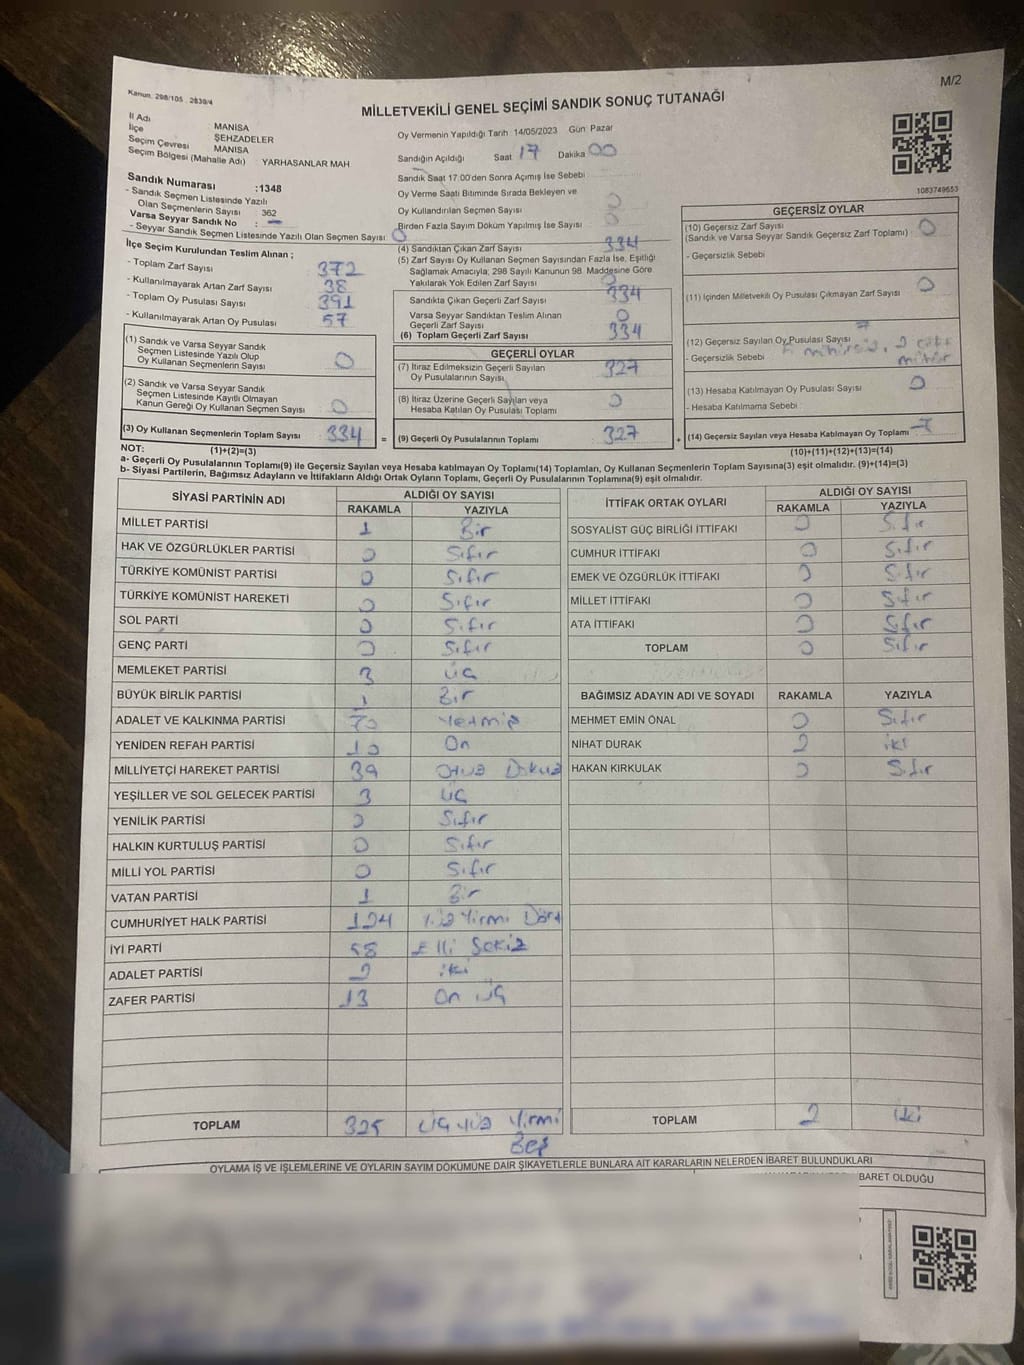 Kanun. 298/105 . 2839/4
M/2
MİLLETVEKİLİ GENEL SEÇİMİ SANDIK SONUÇ TUTANAĞI
İl Adı MANİSA
İlçe ŞEHZADELER
Seçim Çevresi MANİSA
Seçim Bölgesi (Mahalle Adı) YARHASANLAR MAH
Sandık Numarası :1348
- Sandık Seçmen Listesinde Yazılı
Olan Seçmenlerin Sayısı 362
Varsa Seyyar Sandık No : -
- Seyyar Sandık Seçmen Listesinde Yazılı Olan Seçmen Sayısı: 0
İlçe Seçim Kurulundan Teslim Alınan ;
- Toplam Zarf Sayısı 372
- Kullanılmayarak Artan Zarf Sayısı 38
- Toplam Oy Pusulası Sayısı 391
- Kullanılmayarak Artan Oy Pusulası 57
(1) Sandık ve Varsa Seyyar Sandık
Seçmen Listesinde Yazılı Olup
Oy Kullanan Seçmenlerin Sayısı 0
(2) Sandık ve Varsa Seyyar Sandık
Seçmen Listesinde Kayıtlı Olmayan
Kanun Gereği Oy Kullanan Seçmen Sayısı 0
(3) Oy Kullanan Seçmenlerin Toplam Sayısı 334 =
Oy Vermenin Yapıldığı Tarih 14/05/2023 Gün Pazar
Sandığın Açıldığı Saat 17 Dakika 00
Sandık Saat 17:00'den Sonra Açımış İse Sebebi
Oy Verme Saati Bitiminde Sırada Bekleyen ve
Oy Kullandırılan Seçmen Sayısı 0
Birden Fazla Sayım Döküm Yapılmış İse Sayısı 0
(4) Sandıktan Çıkan Zarf Sayısı 334
(5) Zarf Sayısı Oy Kullanan Seçmen Sayısından Fazla İse, Eşitliği
Sağlamak Amacıyla; 298 Sayılı Kanunun 98. Maddesine Göre
Yakılarak Yok Edilen Zarf Sayısı 0
Sandıkta Çıkan Geçerli Zarf Sayısı 334
Varsa Seyyar Sandıktan Teslim Alınan
Geçerli Zarf Sayısı 0
(6) Toplam Geçerli Zarf Sayısı 334
GEÇERLİ OYLAR
(7) İtiraz Edilmeksizin Geçerli Sayılan
Oy Pusulalarının Sayısı 327
(8) İtiraz Üzerine Geçerli Sayılan veya
Hesaba Katılan Oy Pusulası Toplamı 0
(9) Geçerli Oy Pusulalarının Toplamı 327 +
1083749653
GEÇERSİZ OYLAR
(10) Geçersiz Zarf Sayısı 0
(Sandık ve Varsa Seyyar Sandık Geçersiz Zarf Toplamı)
- Geçersizlik Sebebi
(11) İçinden Milletvekili Oy Pusulası Çıkmayan Zarf Sayısı 0
(12) Geçersiz Sayılan Oy Pusulası Sayısı 7
- Geçersizlik Sebebi 5 mühürsüz, 2 çift
mühür
(13) Hesaba Katılmayan Oy Pusulası Sayısı 0
- Hesaba Katılmama Sebebi
(14) Geçersiz Sayılan veya Hesaba Katılmayan Oy Toplamı 7
NOT: (1)+(2)=(3) (10)+(11)+(12)+(13)=(14)
a- Geçerli Oy Pusulalarının Toplamı(9) ile Geçersiz Sayılan veya Hesaba katılmayan Oy Toplamı(14) Toplamları, Oy Kullanan Seçmenlerin Toplam Sayısına(3) eşit olmalıdır. (9)+(14)=(3)
b- Siyasi Partilerin, Bağımsız Adayların ve İttifakların Aldığı Ortak Oyların Toplamı, Geçerli Oy Pusulalarının Toplamına(9) eşit olmalıdır.
SİYASİ PARTİNİN ADI ALDIĞI OY SAYISI
RAKAMLA YAZIYLA
MİLLET PARTİSİ 1 Bir
HAK VE ÖZGÜRLÜKLER PARTİSİ 0 Sıfır
TÜRKİYE KOMÜNİST PARTİSİ 0 Sıfır
TÜRKİYE KOMÜNİST HAREKETİ 0 Sıfır
SOL PARTİ 0 Sıfır
GENÇ PARTİ 0 Sıfır
MEMLEKET PARTİSİ 3 üç
BÜYÜK BİRLİK PARTİSİ 1 Bir
ADALET VE KALKINMA PARTİSİ 70 Yetmiş
YENİDEN REFAH PARTİSİ 10 On
MİLLİYETÇİ HAREKET PARTİSİ 39 Otuz Dokuz
YEŞİLLER VE SOL GELECEK PARTİSİ 3 üç
YENİLİK PARTİSİ 0 Sıfır
HALKIN KURTULUŞ PARTİSİ 0 Sıfır
MİLLİ YOL PARTİSİ 0 Sıfır
VATAN PARTİSİ 1 Bir
CUMHURİYET HALK PARTİSİ 124 Yüz Yirmi Dört
İYİ PARTİ 58 Elli Sekiz
ADALET PARTİSİ 2 iki
ZAFER PARTİSİ 13 On üç
TOPLAM 325 üç yüz Yirmi
Beş
İTTİFAK ORTAK OYLARI ALDIĞI OY SAYISI
RAKAMLA YAZIYLA
SOSYALİST GÜÇ BİRLİĞİ İTTİFAKI 0 Sıfır
CUMHUR İTTİFAKI 0 Sıfır
EMEK VE ÖZGÜRLÜK İTTİFAKI 0 Sıfır
MİLLET İTTİFAKI 0 Sıfır
ATA İTTİFAKI 0 Sıfır
TOPLAM 0 Sıfır
BAĞIMSIZ ADAYIN ADI VE SOYADI RAKAMLA YAZIYLA
MEHMET EMİN ÖNAL 0 Sıfır
NİHAT DURAK 2 iki
HAKAN KIRKULAK 0 Sıfır
TOPLAM 2 iki
OYLAMA İŞ VE İŞLEMLERİNE VE OYLARIN SAYIM DÖKÜMÜNE DAİR ŞİKAYETLERLE BUNLARA AİT KARARLARIN NELERDEN İBARET BULUNDUKLARI
BARET OLDUĞU